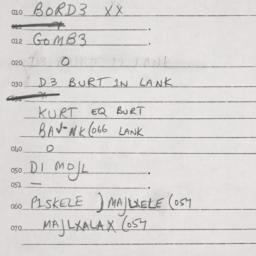 010 BORD3 XX
011
012 GOMB3
020 O
030 D3 BURT IN LANK
KURT EQ BURT
LANK
040 O
050 DI MOJL
052 —
060 PISKELE ) MAJLXELE (054
070 MAJLXALAX (054